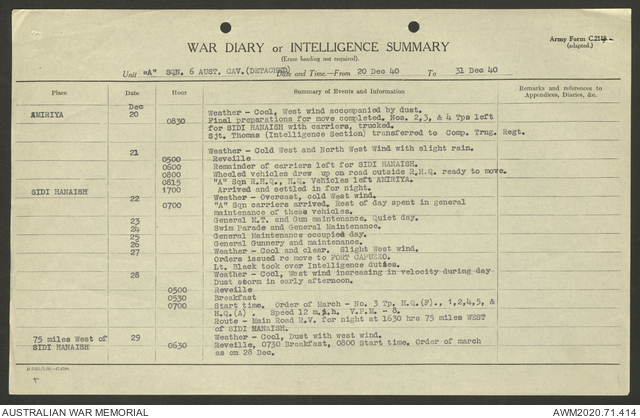 WAR DIARY or INTELLIGENCE SUMMARY
(Erase heading not required).
Army Form C.2118
(adapted.)
Unit "A" SQN. 6 AUST. CAV.(DETACHED) Date and Time.—From 20 Dec 40 To 31 Dec 40
Place Date Hour Summary of Events and Information Remarks and references to Appendices, Diaries, &c.
Dec
AMIRIYA 20 Weather - Cool, West wind accompanied by dust.
0830 Final preparations for move completed. Nos. 2,3, & 4 Tps left
for SIDI HANAISH with carriers, trucked.
Sjt. Thomas (Intelligence Section) transferred to Comp. Trng. Regt.
21 Weather - Cold West and North West Wind with slight rain.
0500 Reveille
0600 Remainder of carriers left for SIDI HANAISH.
0800 Wheeled vehicles drew up on road outside R.H.Q. ready to move.
0815 "A" Sqn R.H.Q., H.Q. Vehicles left AMIRIYA.
SIDI HANAISH 1700 Arrived and settled in for night.
22 Weather - Overcast, cold West wind.
0700 "A" Sqn carriers arrived. Rest of day spent in general
maintenance of these vehicles.
23 General M.T. and Gun maintenance. Quiet day.
24 Swim Parade and General Maintenance.
25 General Maintenance occupied day.
26 General Gunnery and maintenance.
27 Weather - Cool and clear. Slight West wind.
Orders issued re move to FORT CAPUZZO.
Lt. Black took over Intelligence duties.
28 Weather - Cool, West wind increasing in velocity during day
Dust storm in early afternoon.
0500 Reveille
0530 Breakfast
0700 Start time. Order of March - No. 3 Tp. H.Q.(F)., 1,2,4,5, &
H.Q.(A) . Speed 12 m.i.h. V.P.M. - 8.
Route - Main Road R.V. for night at 1630 hrs 75 miles WEST
of SIDI HANAISH.
75 miles West of 29 Weather - Cool, Dust with west wind.
SIDI HANAISH 0630 Reveille, 0730 Breakfast, 0800 Start time. Order of march
as on 28 Dec.
AUSTRALIAN WAR MEMORIAL AWM2020.71.414